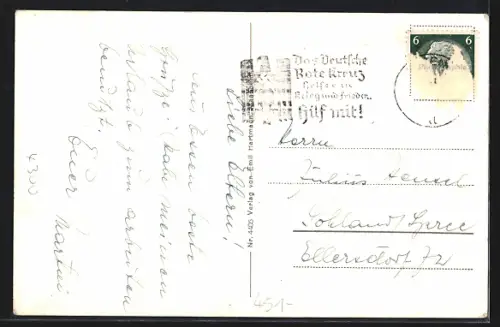 Liebe Eltern!
aus Essen beste
Grüße. Habe meinen
Urlaub zum arbeiten
benutzt.
Euer Martin.
4300
Nr. 4405 Verlag von Emil Hartmann
Das Deutsche
Rote Kreuz
Helfer in
Krieg und Frieden
Hilf mit!
6 6
Herrn
Julius
Sohland/Spree
Ellersdorf 72
451-